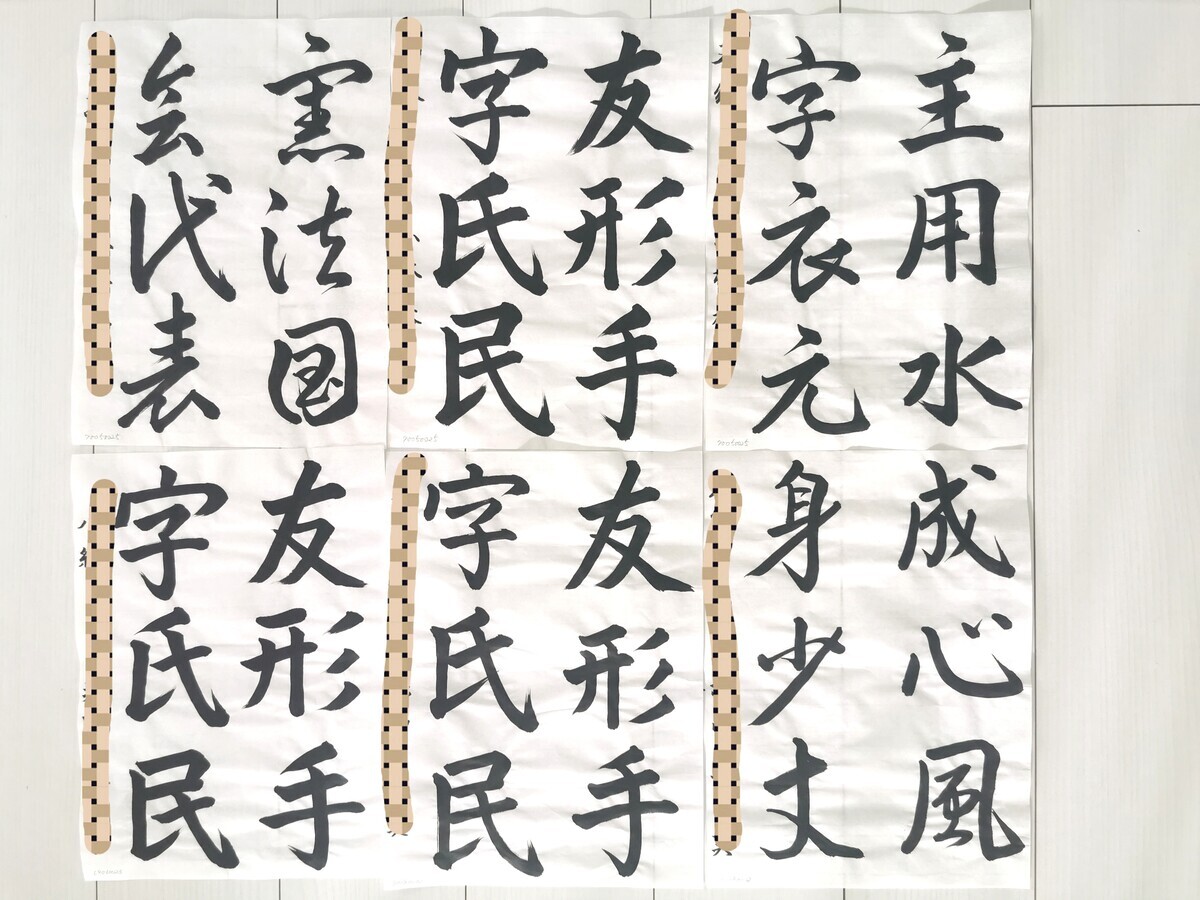 主用水
字衣元
友形手
字氏民
憲法国
会代表
成心風
身少丈
友形手
字氏民
友形手
字氏民